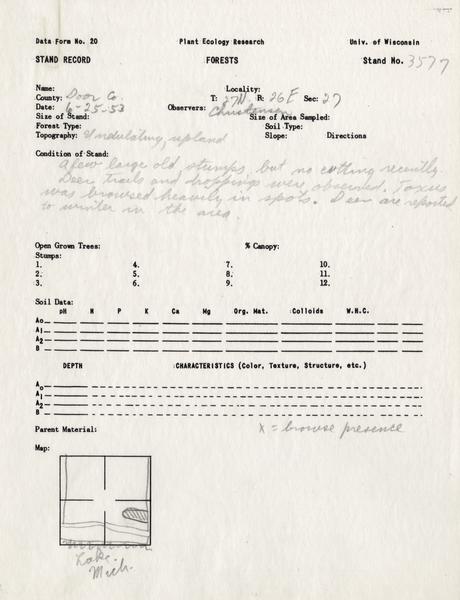 Data Form No. 20 Plant Ecology Research Univ. of Wisconsin
STAND RECORD FORESTS Stand No. 3577
Name: Locality:
County: Door Co. T: 27N R: 26E Sec: 27
Date: 6-25-53 Observers: Christensen
Size of Stand: Size of Area Sampled:
Forest Type: Soil Type:
Topography: Undulating, upland Slope: Directions
Condition of Stand:
A few large old stumps, but no cutting recently.
Deer trails and droppings were observed. Taxus
was browsed heavily in spots. Deer are reported
to winter in the area.
Open Grown Trees: % Canopy:
Stumps:
1. 4. 7. 10.
2. 5. 8. 11.
3. 6. 9. 12.
Soil Data:
pH N P K Ca Mg Org. Mat. Colloids W.H.C.
Ao
A1
A2
B
DEPTH CHARACTERISTICS (Color, Texture, Structure, etc.)
Ao
A1
A2
B
Parent Material: X = browse presence
Map:
Lake
Mich.